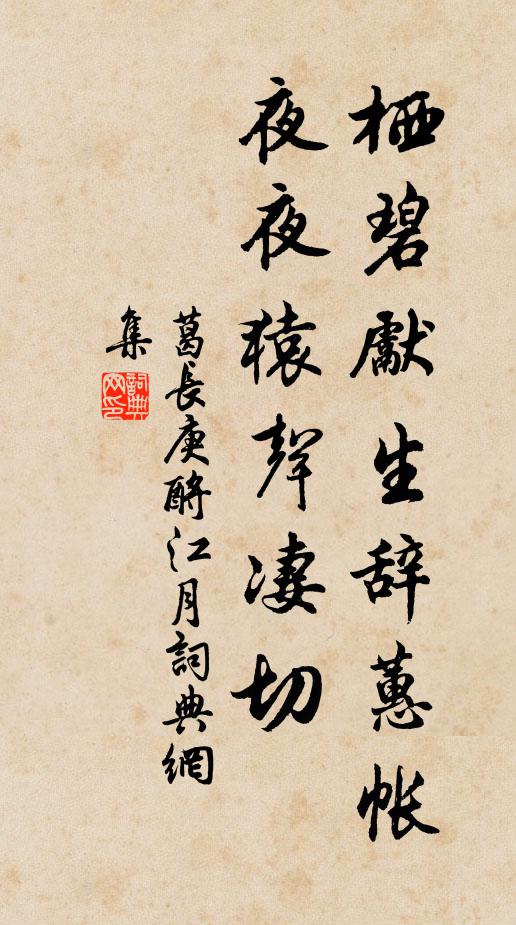 栖碧獻生辞蕙帳
夜夜猿聲凄切
葛長庚酹江月詞典網
集
詞典
网印